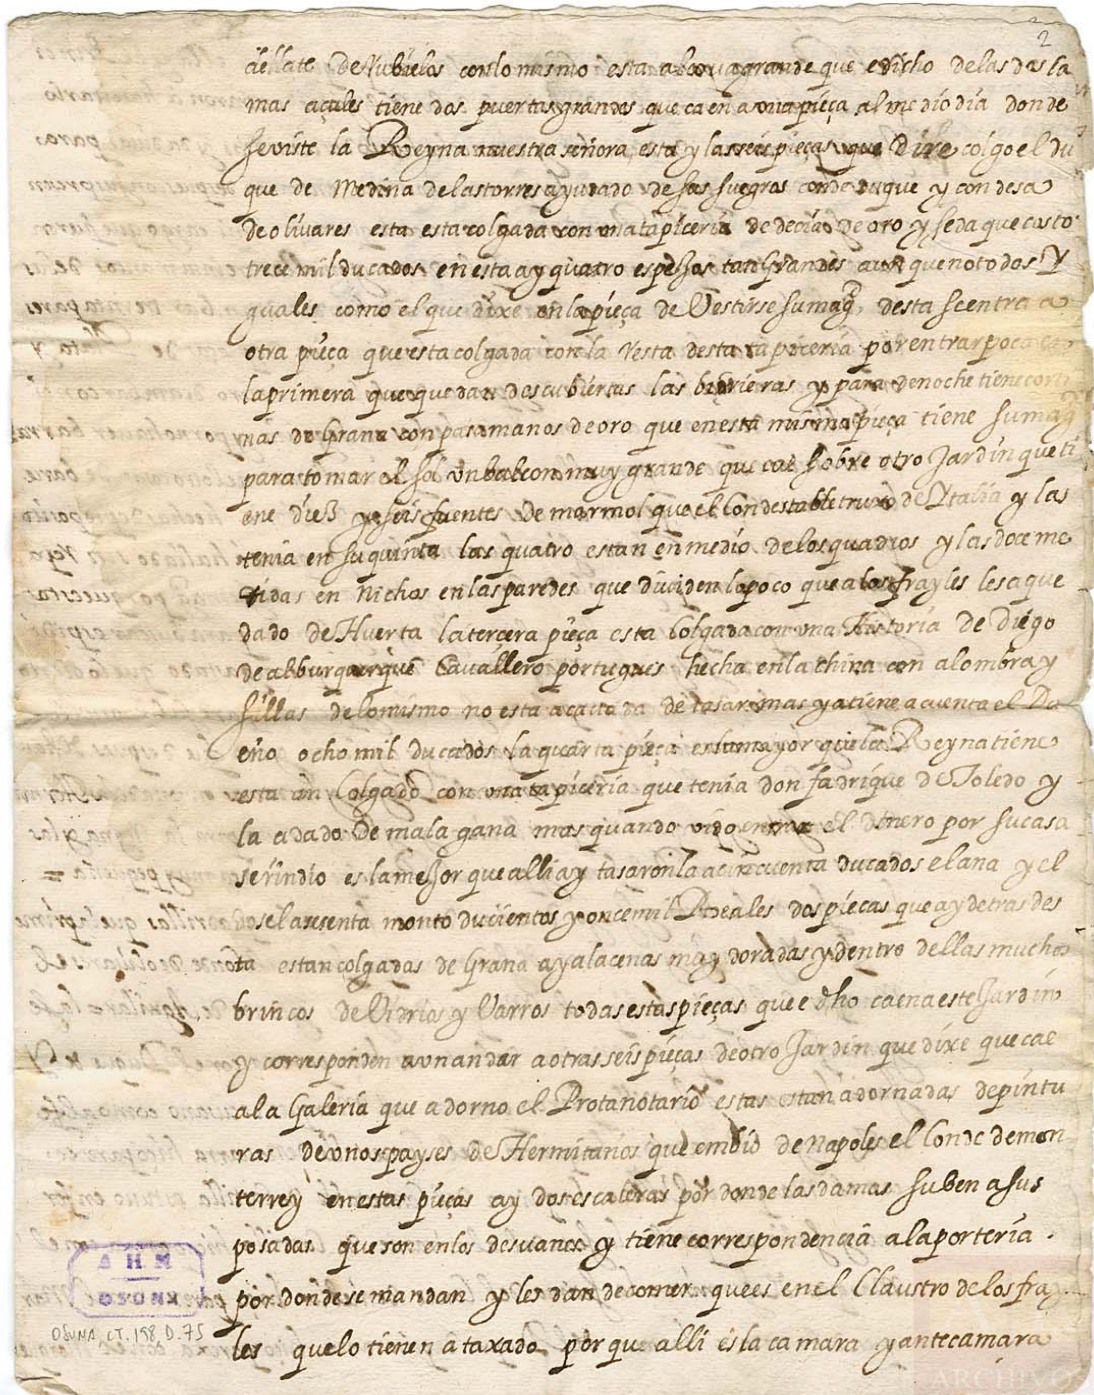 2
de llate de Nubielos con lo mismo esta alcova grande que e dicho de las dos la
mas açules tiene dos puertas grandes que caen a una pieça al medio dia donde
se viste la Reyna nuestra señora, esta y las seis pieças que dire colgo el du
que de Medina de las torres ayudado de sus suegros conde duque y condesa
de olivares esta esta colgada con una tapiceria de decias de oro y seda que costo
trece mil ducados en esta ay quatro espejos tan Grandes aunque no todos Y
guales como el que dixe en la pieça de Vestirse su magd, desta se entra a
otra pieça que esta colgada con la resta desta tapiceria por entrar poca en
la primera que quedan descubiertas las bidrieras y para de noche tiene corti
nas de Grana con pasamanos de oro que en esta misma pieça tiene su magd
para tomar el sol un balcon muy grande que cae sobre otro Jardin que ti
ene dieß y seis fuentes de marmol que el Condestable truxo de Ytalia y las
tenia en su quinta las quatro estan en medio de los quadros y las doce me
tidas en Nichos en las paredes que dividen lo poco que a los frayles les a que
dado de Huerta la tercera pieça esta Colgada con una Historia de Diego
de alburquerque Cavallero portugues hecha en la china con alombra y
sillas de lo mismo no esta acavada de tasar mas ya tiene a cuenta el Du
eño ocho mil ducados la quarta pieça es la mayor que la Reyna tiene
esta an Colgado con una tapiceria que tenia don fadrique de Toledo y
la a dado de mala gana mas quando vido entrar el dinero por su casa
se rindio es la mejor que alli ay tasaronla a cincuenta ducados el ana y el
dosel a sesenta monto ducientos y once mil Reales dos pieças que ay detras des
ta estan colgadas de Grana ay alacenas muy doradas y dentro dellas muchos
brincos de Vidrios y Varros todas estas pieças que e dho caen a este Jardin
y corresponden a un andar a otras seis pieças de otro Jardin que dixe que cae
a la Galeria que adorno el Protanotario estas estan adornadas de pintu
ras de unos payses de Hermitanos que embio de napoles el Conde de mon
terrey en estas pieças ay dos escaleras por donde las damas suben a sus
posadas que son en los desvanes y tiene correspondencia a la porteria.
por donde se mandan y les dan de comer que es en el Claustro de los fray
les que lo tienen ataxado por que alli es la camara y antecamara
A H N
OSUNA, CT. 198, D. 75
ARCHIVOS